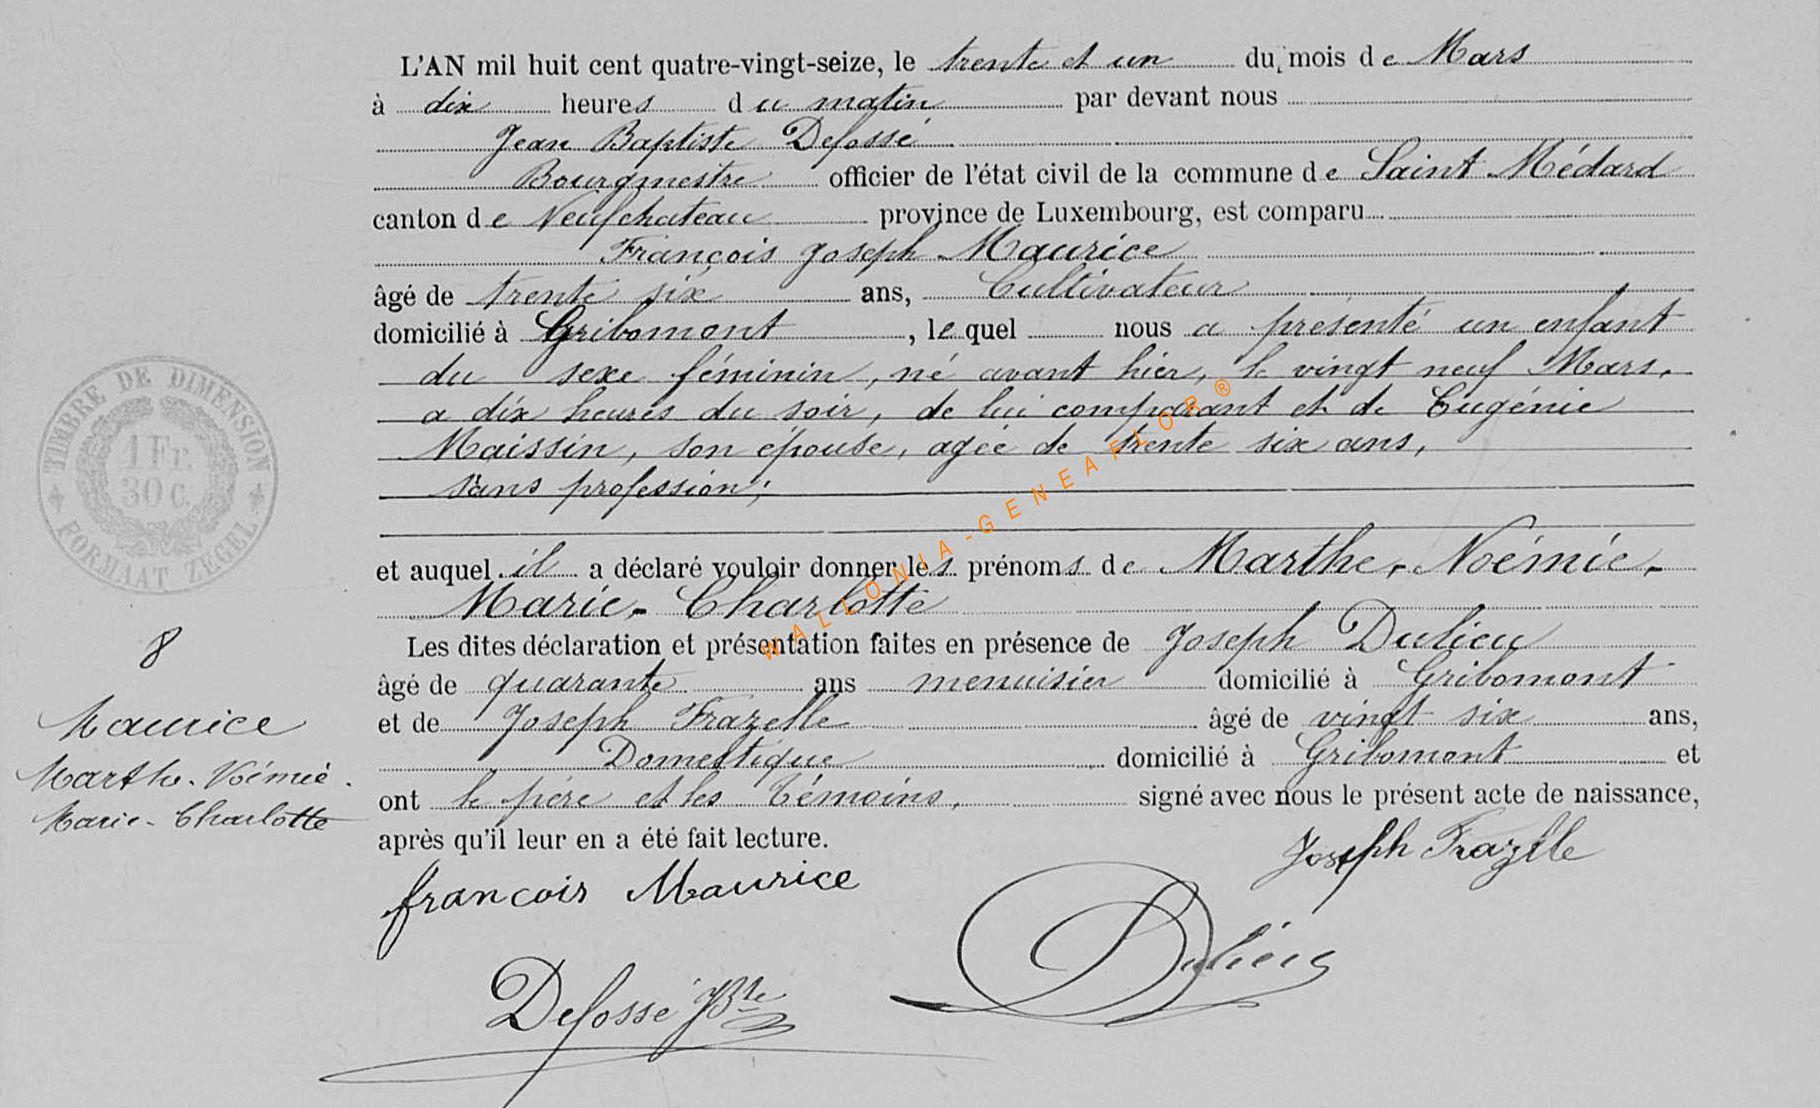 L'AN mil huit cent quatre-vingt-seize, le trente et un du mois de Mars
à dix heures du matin par devant nous
Jean Baptiste Defossé
Bourgmestre officier de l'état civil de la commune de Saint Médard
canton de Neufchateau province de Luxembourg, est comparu
François Joseph Maurice
âgé de trente six ans, Cultivateur
domicilié à Gribomont, lequel nous a présenté un enfant
du sexe féminin, né avant hier, le vingt neuf Mars,
a dix heures du soir, de lui comparant et de Eugénie
Maissin, son épouse, agée de trente six ans,
sans profession;
et auquel il a déclaré vouloir donner les prénoms de Marthe-Noémie-
Marie-Charlotte
Les dites déclaration et présentation faites en présence de Joseph Dulieu
âgé de quarante ans menuisier domicilié à Gribomont
et de Joseph Frazelle âgé de vingt six ans,
Domestique domicilié à Gribomont et
ont le père et les témoins, signé avec nous le présent acte de naissance,
après qu'il leur en a été fait lecture.
Joseph Frazelle
francois Maurice
Dulieu
Defossé JBte
TIMBRE DE DIMENSION
1 Fr.
30 C.
FORMAAT ZEGEL
8
Maurice
Marthe-Noémie-
Marie-Charlotte
WALLONIA-GENEAFLOR®